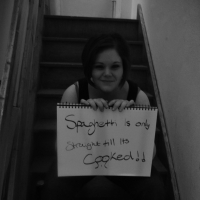 Spaghetti is only
Straight till its
Cooked!!